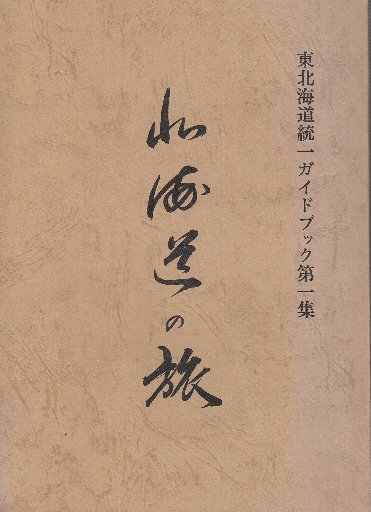 東北海道統一ガイドブック第一集
北海道の旅